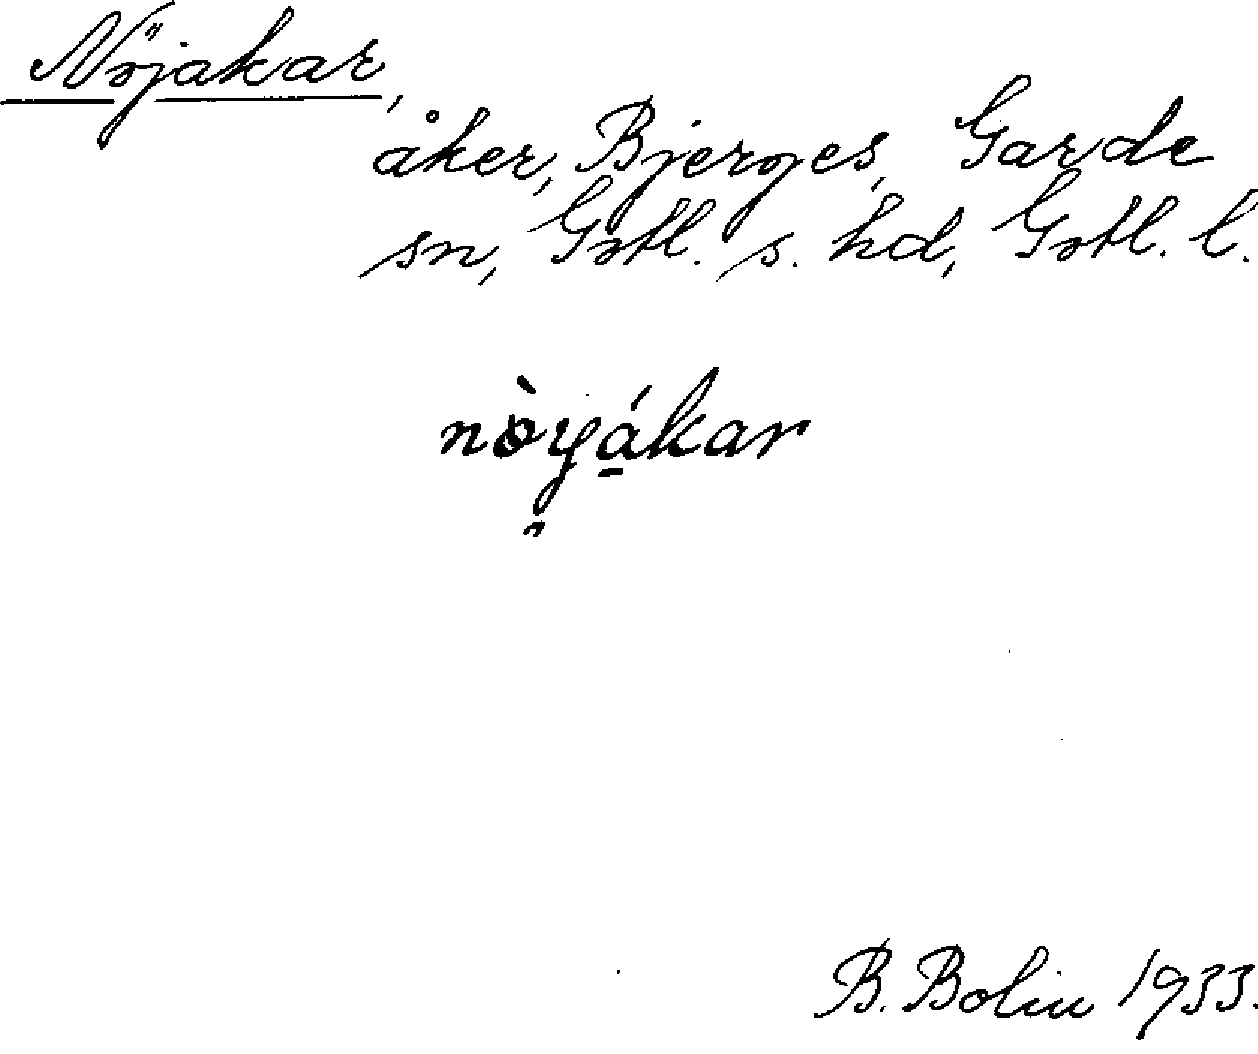 Nöjakar,
åker, Bjerges, Garde
sn, Gotl. s. hd, Gotl. l.
nòyákar
B. Bolin 1933.